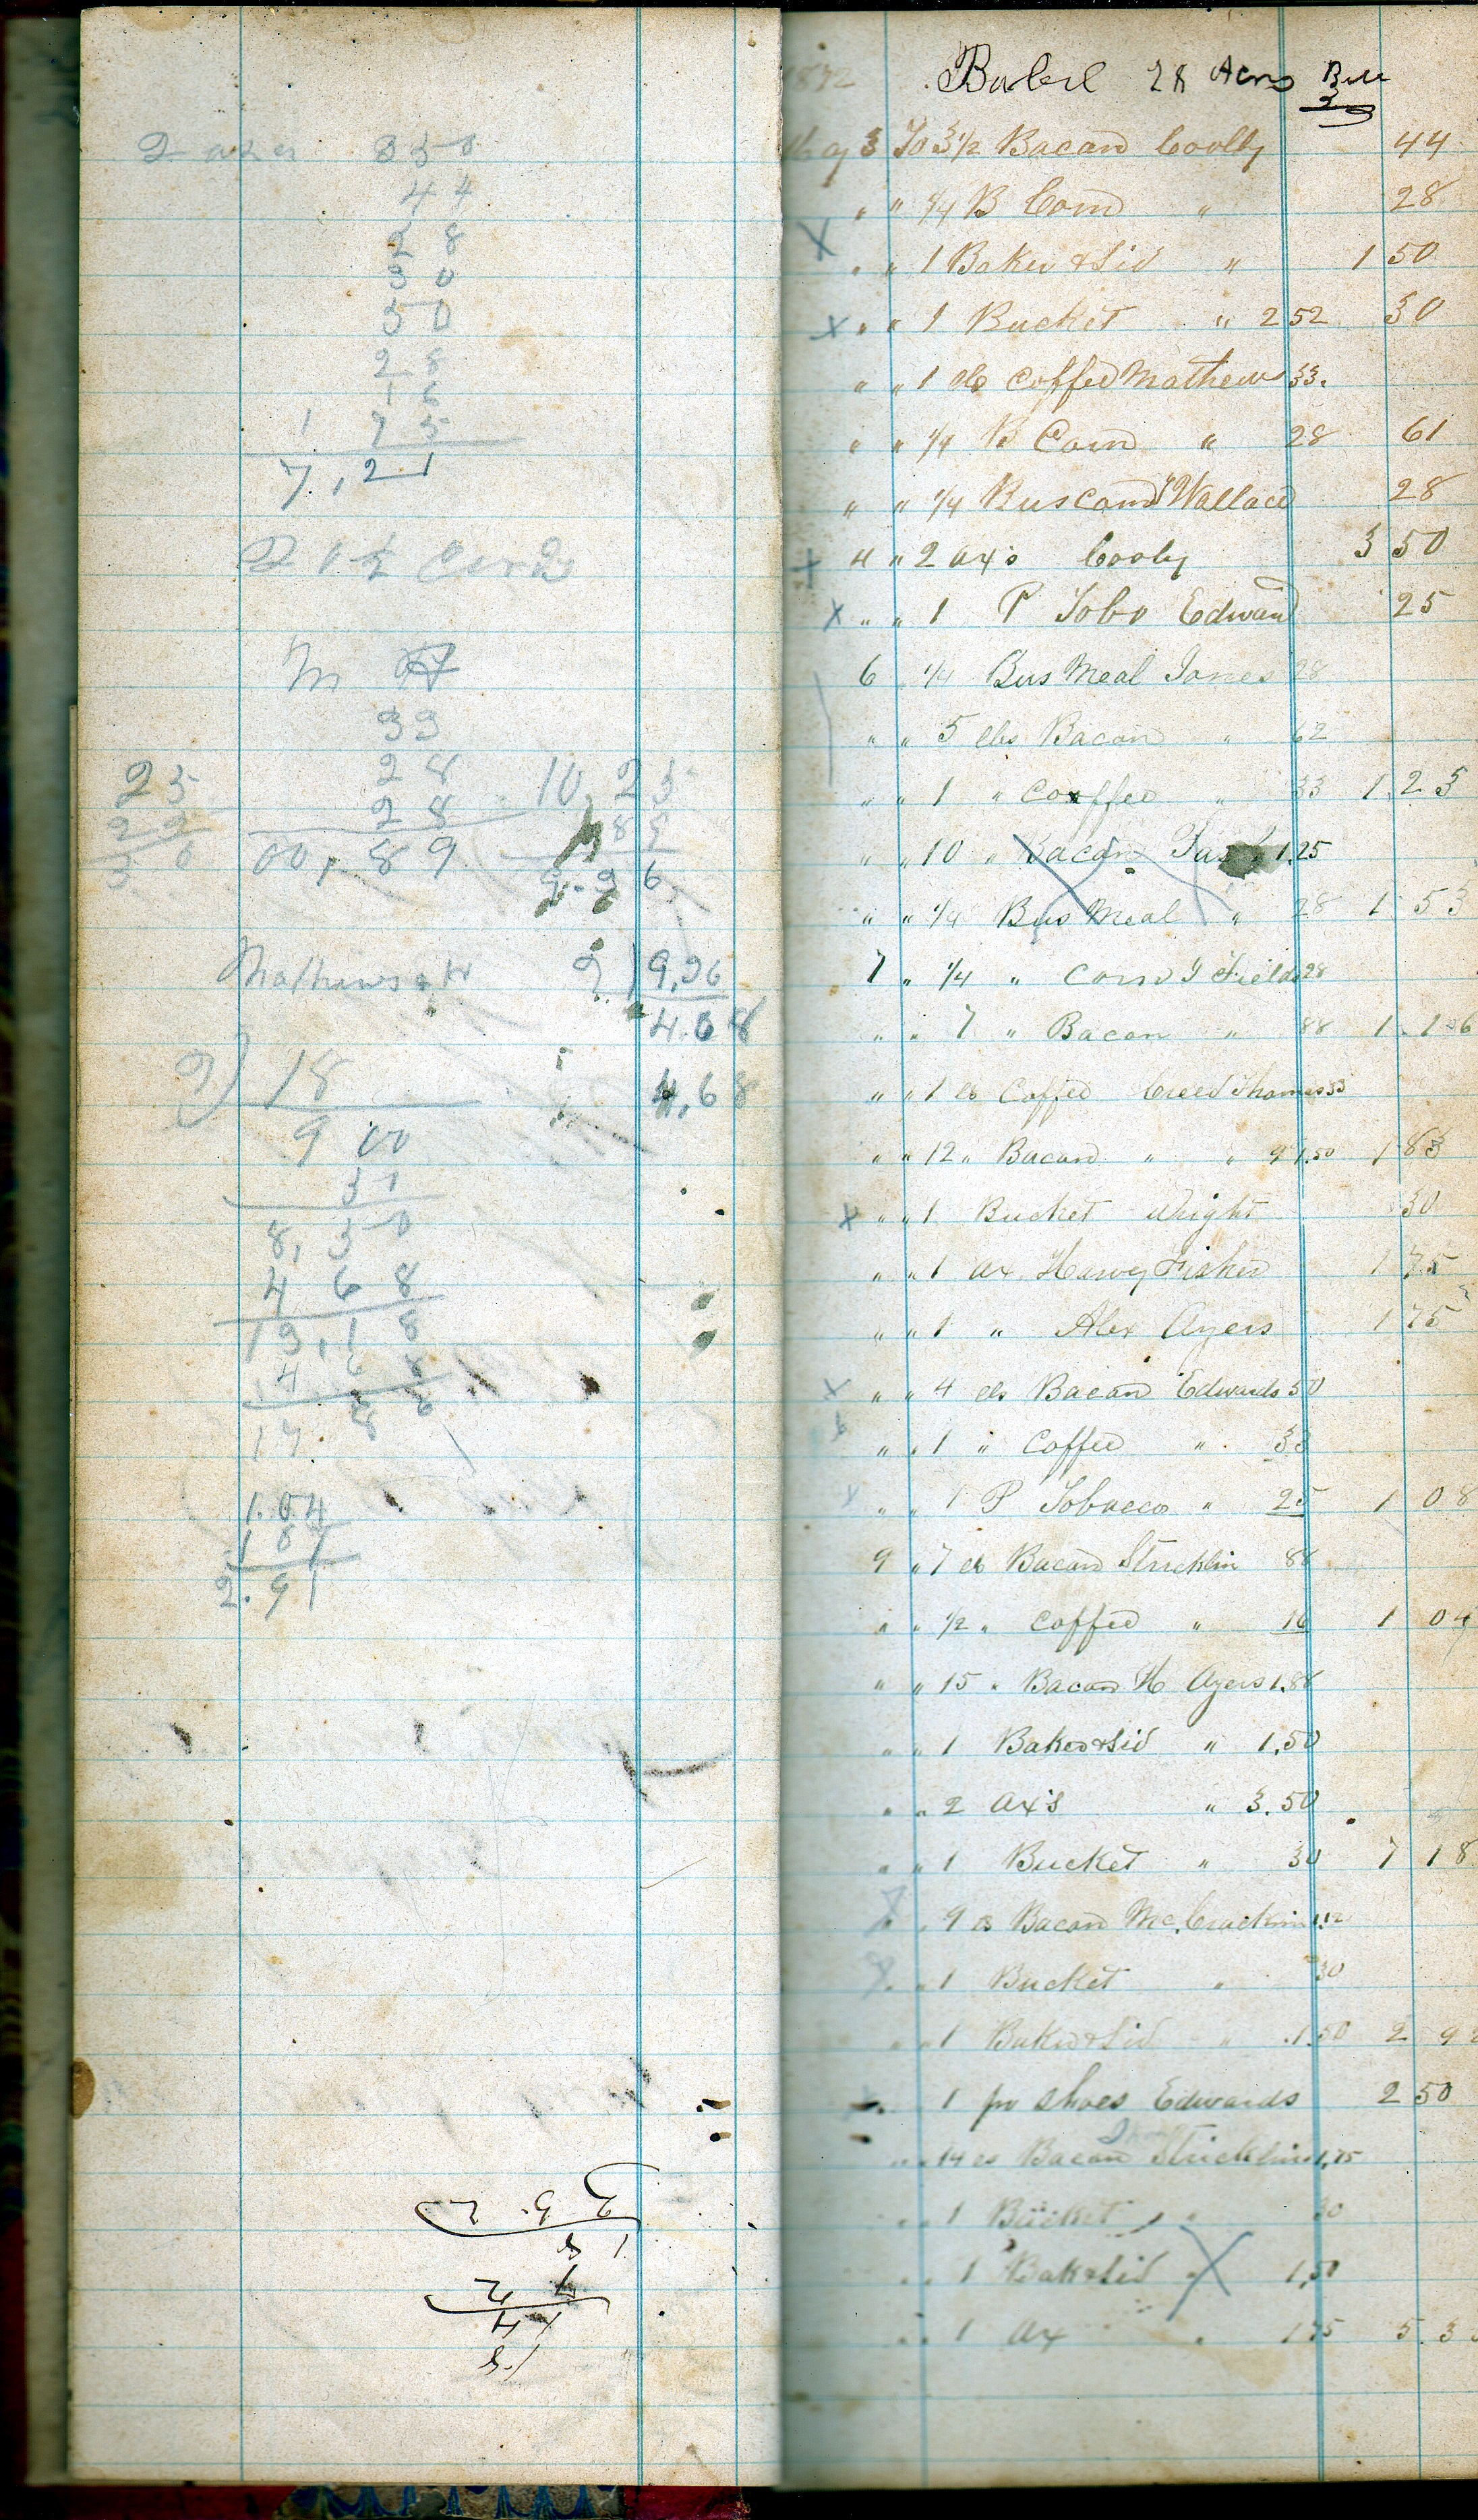 2 axes 3 50
4 4
2 8
3 0
5 0
2 8
1 6
1 75
7,21
M
33
2 8
2 8
00,89
25
10,25
9.36
Mathews &
2) 9,36
4.68
4,68
2) 18
9 00
8,50
4 68
13,18
4 68
17 86
1.04
1 87
2.91
1872
28 Acres
Aug 3 To 3 1/2 Bacon Coolly 44
" " 1/4 B Corn " 28
X " " 1 Baker & Lid " 1 50
X " " 1 Bucket " 2 52 30
" " 1 lb Coffee Mathews 33
" " 1/4 B Corn " 28 61
" " 1/4 Bus Corn Wallace 28
X 4 " 2 ax's Cooly 3 50
X " " 1 P Tobo Edward 25
6 " 1/4 Bus Meal Jones 28
" " 5 lbs Bacon " 62
" " 1 " Coffee " 33 1.23
" " 10 " Bacon 1.25
" " 1/4 Bus Meal " 28 1 53
7 " 1/4 " Corn J Fields 28
" " 7 " Bacon " 88 1.16
" " 1 lb Coffee Creed Thomas 33
" " 12 " Bacon " " 1.50 1 83
X " " 1 Bucket Wright 30
" " 1 ax Harvey Fisher 1 75
" " 1 " Alex Ayers 1 75
X " " 4 lbs Bacon Edwards 50
" " 1 " Coffee " 33
X " " 1 P Tobacco " 25 1 08
9 " 7 lb Bacon Stricklin 88
" " 1/2 " Coffee " 16 1 04
" " 15 " Bacon H Ayers 1.88
" " 1 Baker & Lid " 1.50
" " 2 ax's " 3.50
" " 1 Bucket " 30 7 18
" " 9 lb Bacon McCrackin 1.12
" " 1 Bucket " 30
" " 1 Baker & Lid " 1.50 2 92
1 pr Shoes Edwards 2 50
" " 14 lb Bacon Stricklin 1.75
" " 1 Bucket " 30
" " 1 Bak & Lid " X 1.50
" " 1 ax " 1 75 5.3
3 5 2
1 8
7 2
1 4
1 8